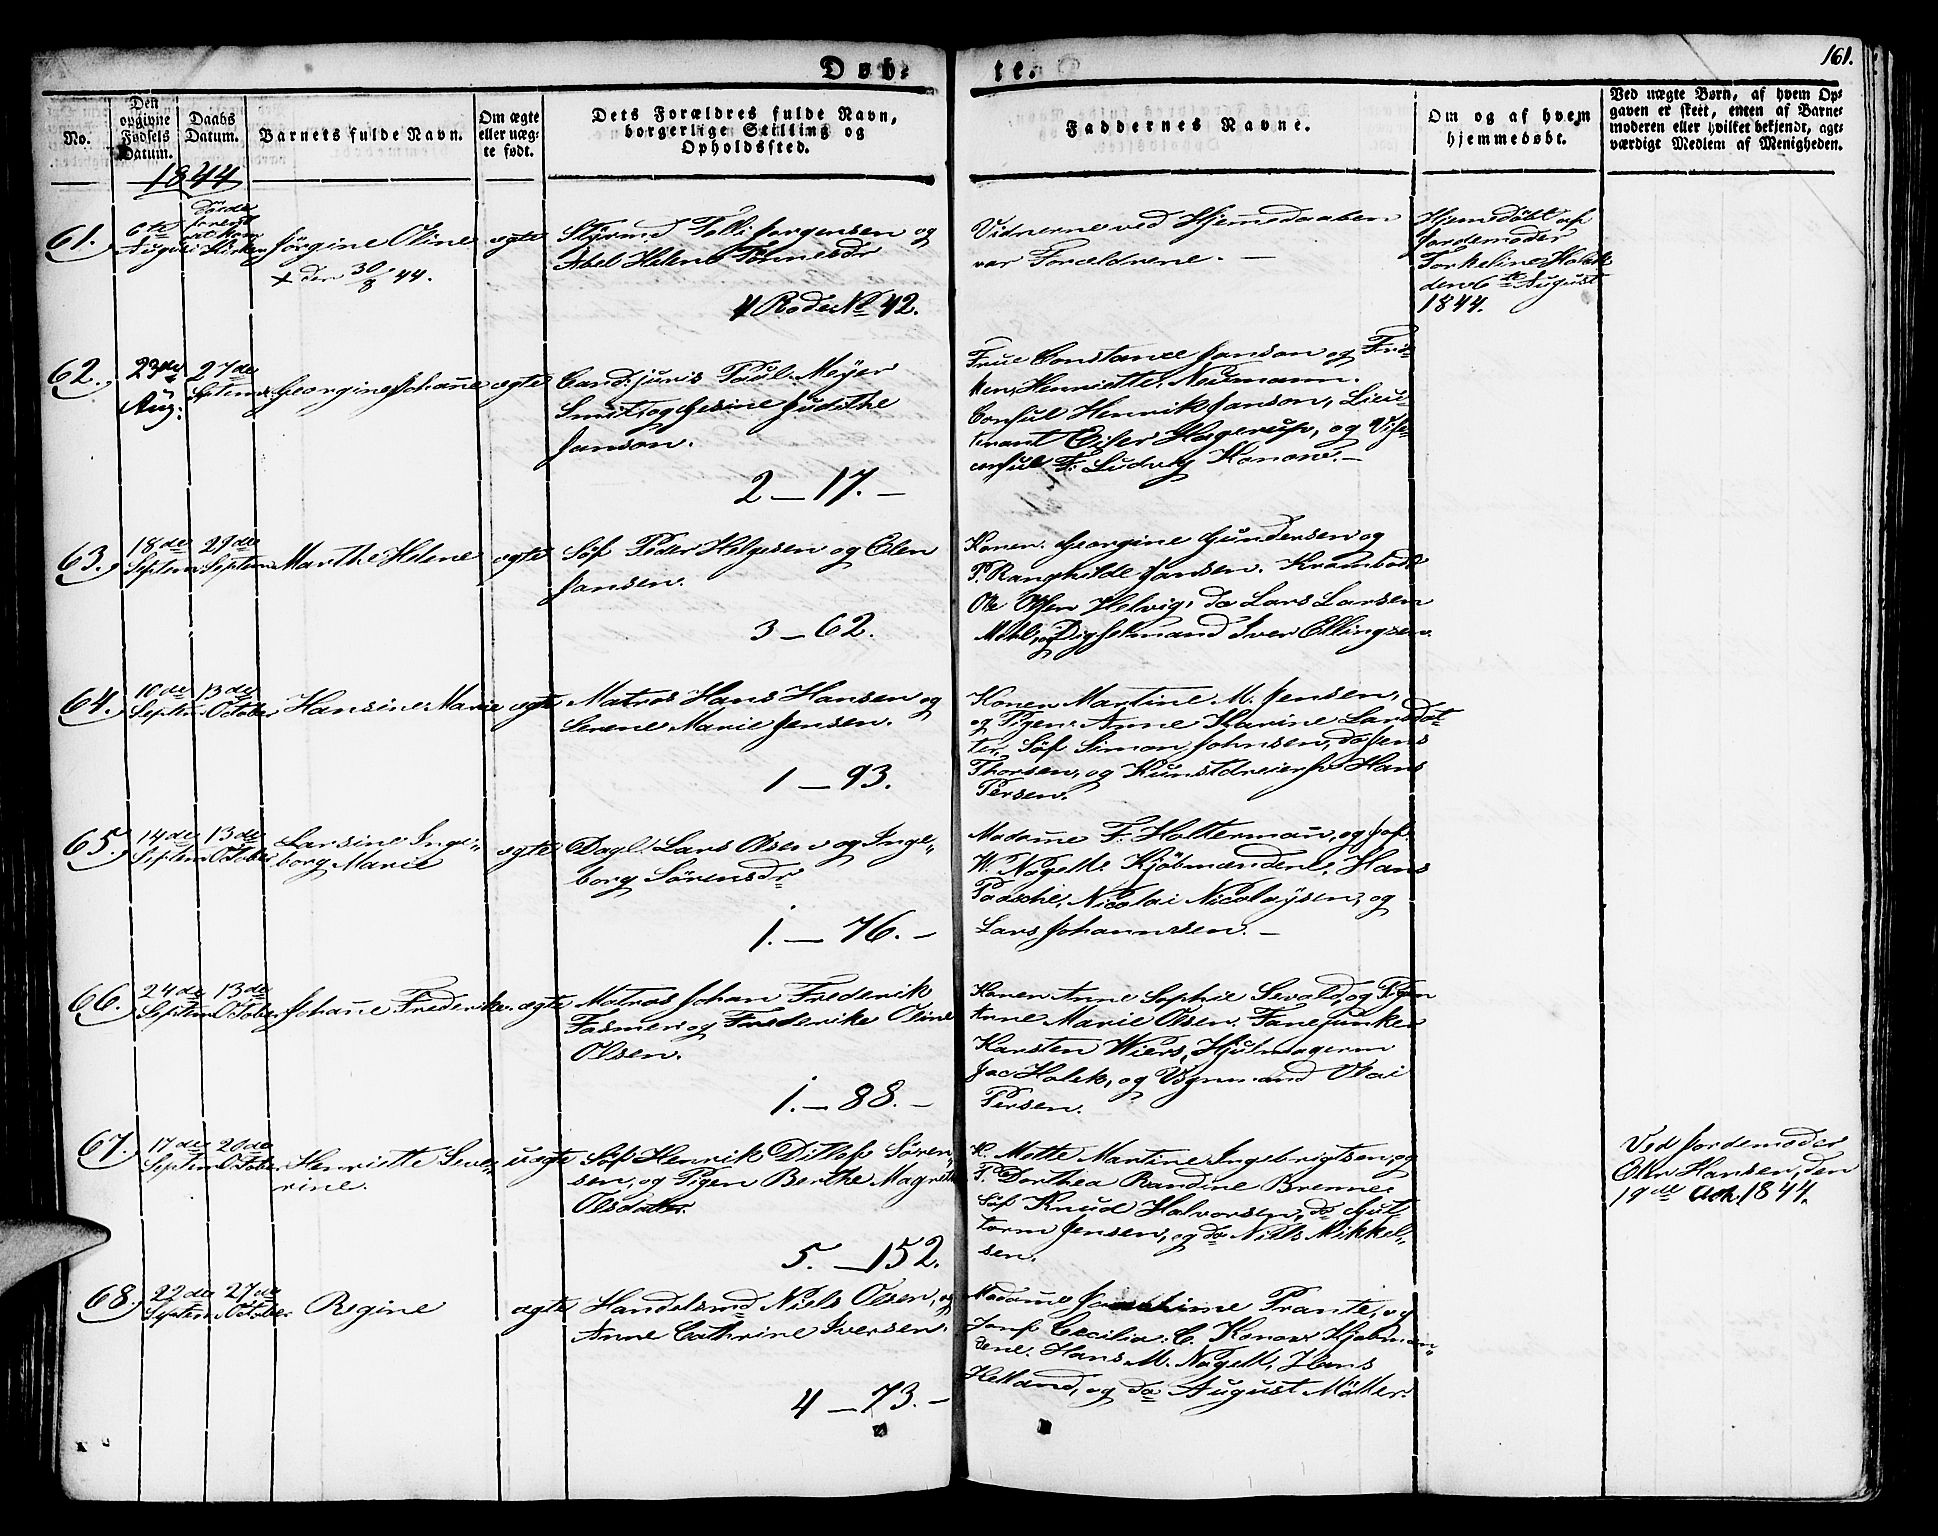 161.
Døb-
te.
No.
Den
opgivne
Fødsels
Datum.
Daabs
Datum.
Barnets fulde Navn.
Om ægte
eller uæg-
te født.
Dets Forældres fulde Navn,
borgerlige Stilling og
Opholdssted.
Faddernes Navne.
Om og af hvem
hjemmedøbt.
Ved uægte Børn, af hvem Op-
gaven er skeet, enten af Barne-
moderen eller hvilket bekjendt, agt-
værdigt Medlem af Menigheden.
1844
61.
6te
August
Kirken
Jørgine Oline
+ den 30/8 44.
ægte
Styrmd Tolli Jørgensen og
Abel Helene Tønnesdr
4 Rode No 42.
Vidnerne ved Hjemedaaben
var Forældrene. —
Hjemedøbt af
Jordemoder
Torkeline Holck
den 6te August
1844.
62.
23de
Aug:
27de
Septem
Georgine Johanne
ægte
Cand: juris Paul Meyer
Smit, og Gesine Judithe
Janson.
2 — 17. —
Frue Constance Janson og Frø-
ken Henriette Neumann.
Consul Henrik Janson, Lieu-
tenant Eiler Hagerup, og Vise-
consul F: Ludvig Konow. —
63.
18de
Septem
29de
Septem
Marthe Helene
ægte
Søf Peder Helgesen og Elen
Jansen.
3 — 62.
Konen Georgine Gundersen og
P. Ranghilde Jansen. Krambodk
Ole Olsen Helvig, do Lars Larsen
Mehl, og Digselmand Iver Ellingsen.
64.
10de
Septem
13de
October
Hansine Marie
ægte
Matros Hans Hansen og
Serene Marie Jensen.
1 — 93.
Konen Martine M. Jensen,
og Pigen Anne Karine Larsdat-
ter, Søf Simon Johnsen, do Jens
Thorsen, og Kunstdreiersv Hans
Persen.
65.
14de
Septem
13de
October
Larsine Inge-
borg Marie
ægte
Dagl. Lars Olsen og Inge-
borg Sørensdr
1. — 76. —
Madame F. Holterman, og Jof.
W. Nagell. Kjøbmændene, Hans
Paasche, Nicolai Nicolaysen, og
Lars Johannesen. —
66.
24de
Septem
13de
October
Johanne Frederike
ægte
Matros Johan Frederik
Fasmer og Frederike Oline
Olsen.
1. — 88. —
Konen Anne Sophie Sevold, og Pigen
Anne Marie Olsen. Fanejunker
Karsten Wiers, Hjulmagerm
Jac Holck, og Vognmand Olai
Persen.
67.
17de
Septem
20de
October
Henriette Seve-
rine.
uægte
Søf Henrik Ditlef Søren-
sen, og Pigen Berthe Magrethe
Olsdatter.
5. — 152.
K. Mette Martine Ingebrigtsen, og
P. Dorthea Randine Brenne.
Søf Knud Halvorsen, do Gut-
torm Jensen, og do Niels Mikkel-
sen.
Ved Jordemoder
Hansen, den
19de Oct. 1844.
68.
22de
Septem
27de
October
Regine
ægte
Handelsmd Niels Olsen, og
Anne Cathrine Iversen.
4 — 73. —
Madame Joachime Prante, og
Jomf Cecilia C. Konow. Kjøbmæn-
dene. Hans M. Nagell, Hans
Helland, og do August Møller.